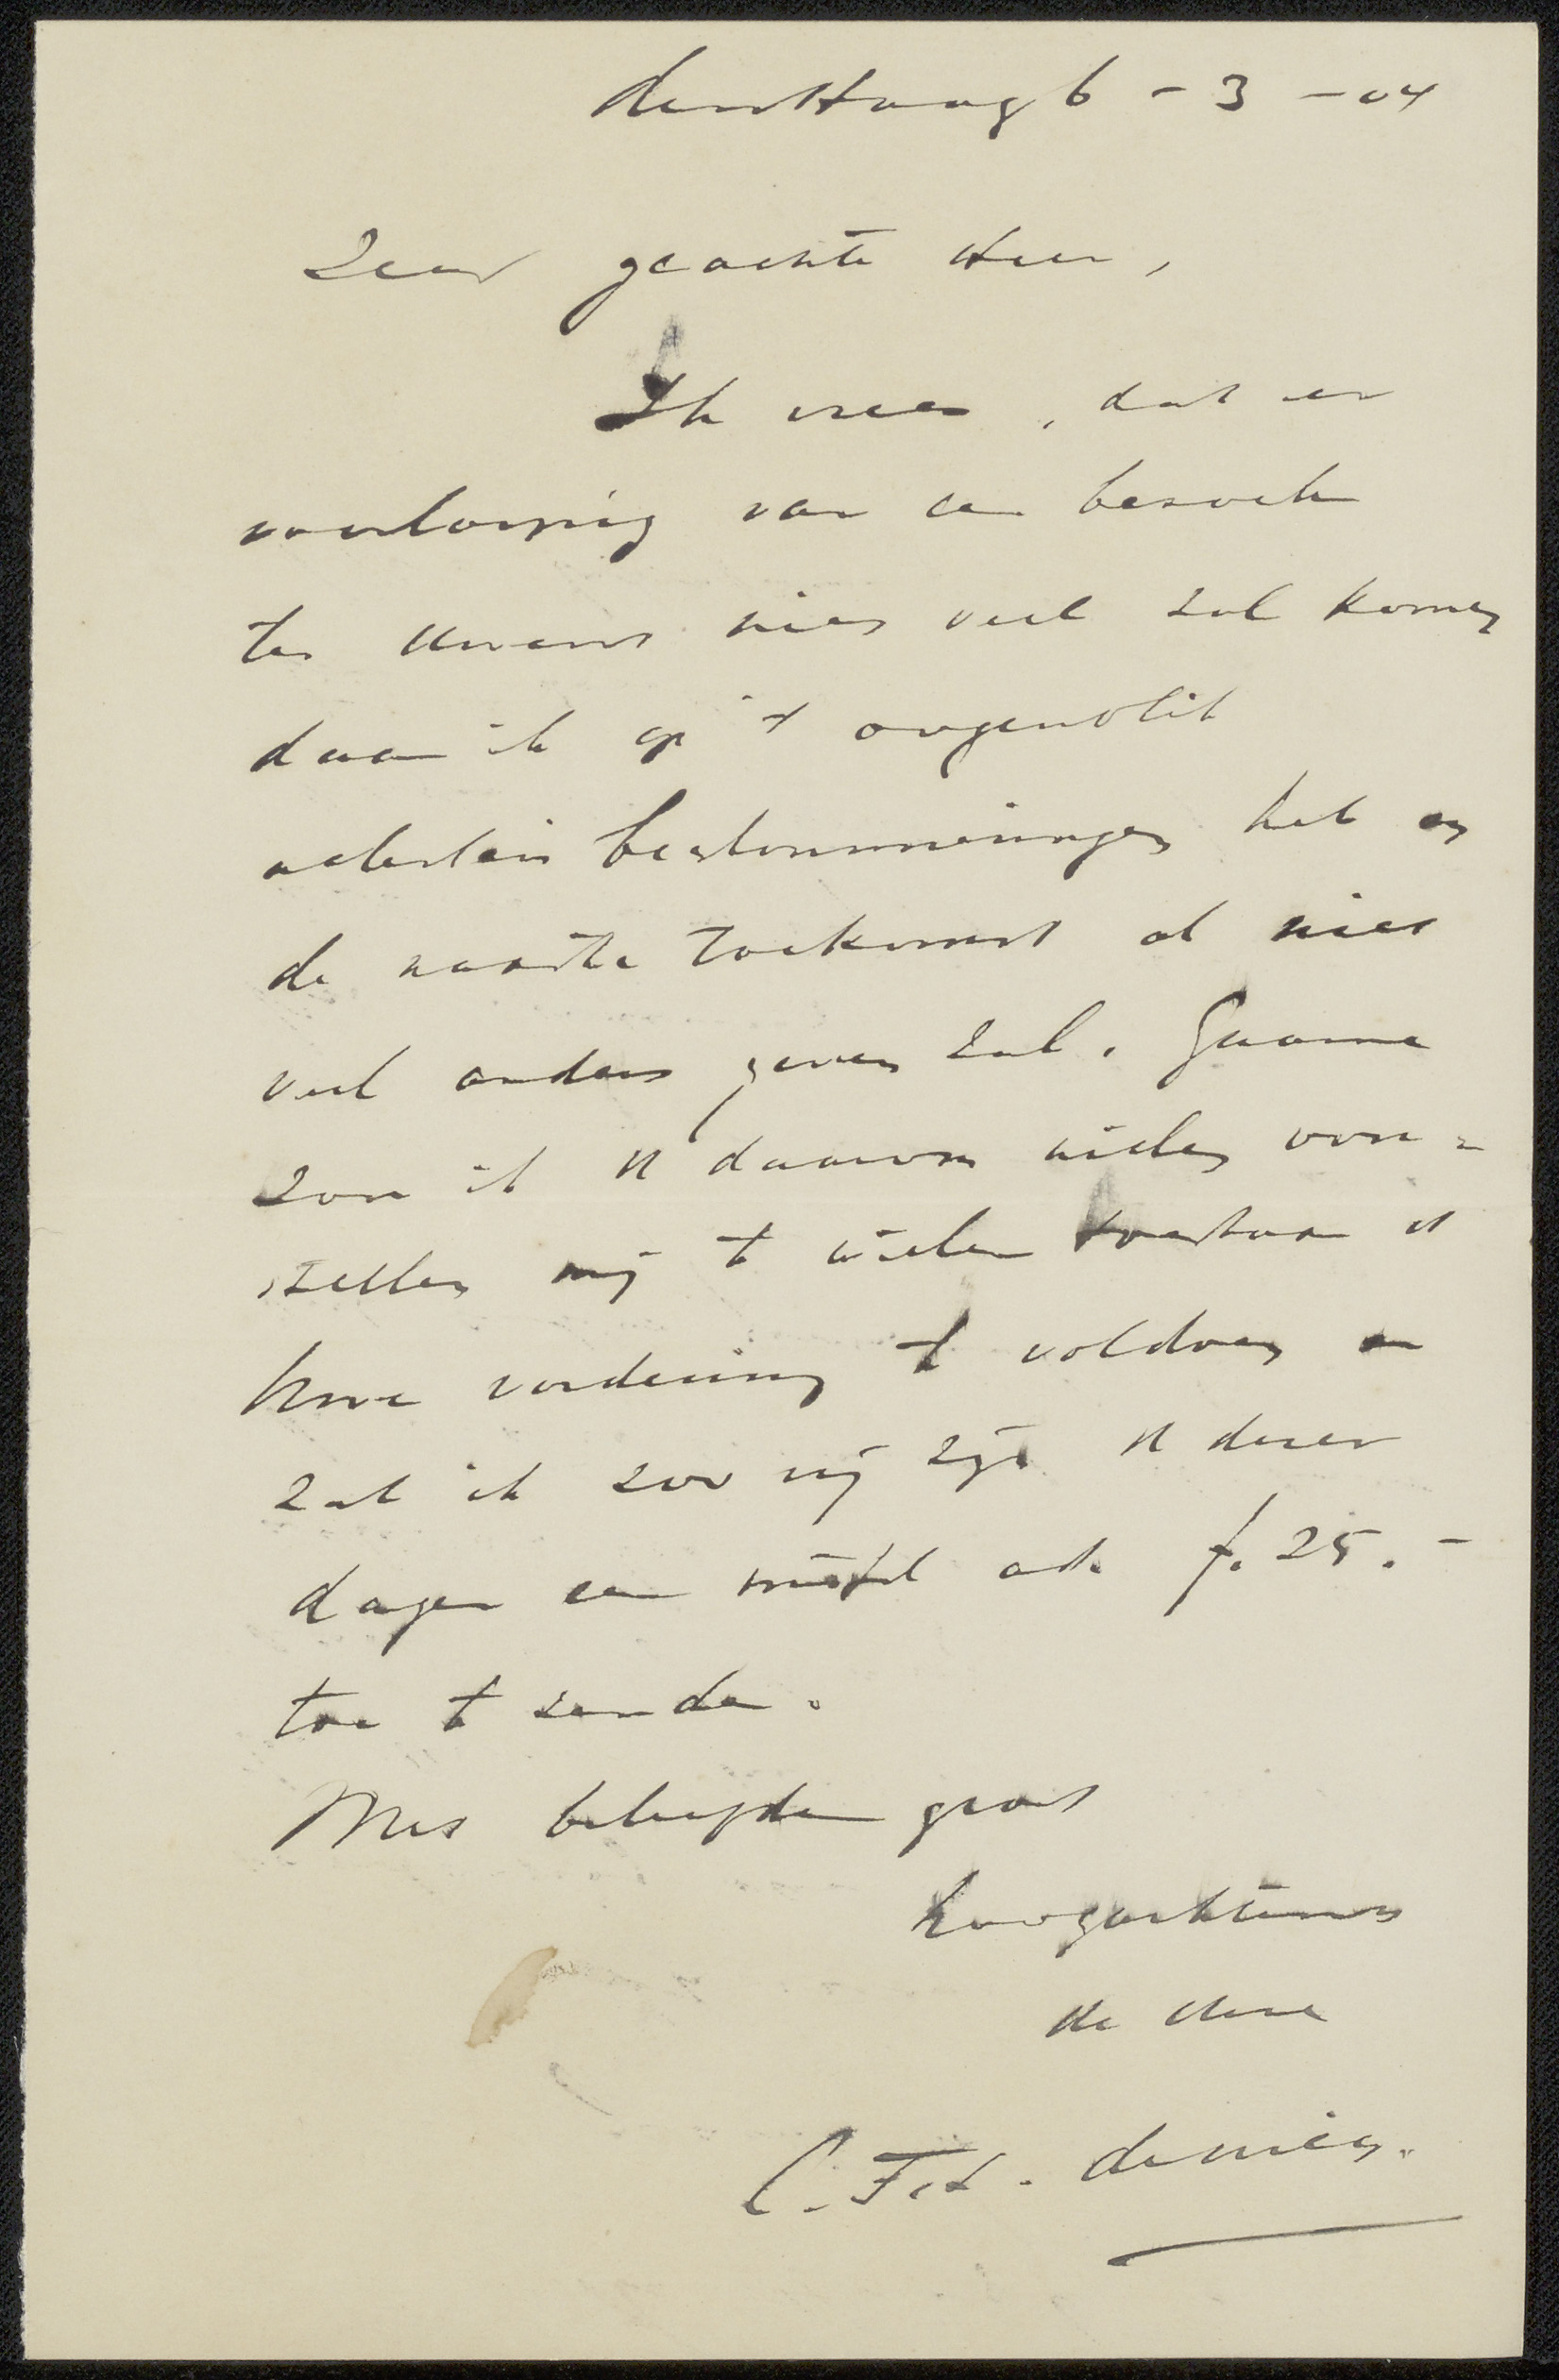 den Haag 6 - 3 - 04
Zeer geachte Heer,
Ik vrees, dat er
voorloopig van een bezoek
te Uwent niet veel zal komen
daar ik op 't oogenblik
allerlei beslommeringen heb en
de naaste toekomst ook niet
veel anders geven zal. Gaarne
zou ik U daarom willen voor=
stellen mij te willen toestaan U
Uwe vordering te voldoen en
zal ik zoo vrij zijn U dezer
dagen een wissel ad. f. 25.-
toe te zenden.
Met beleefden groet
hoogachtend
de Uwe